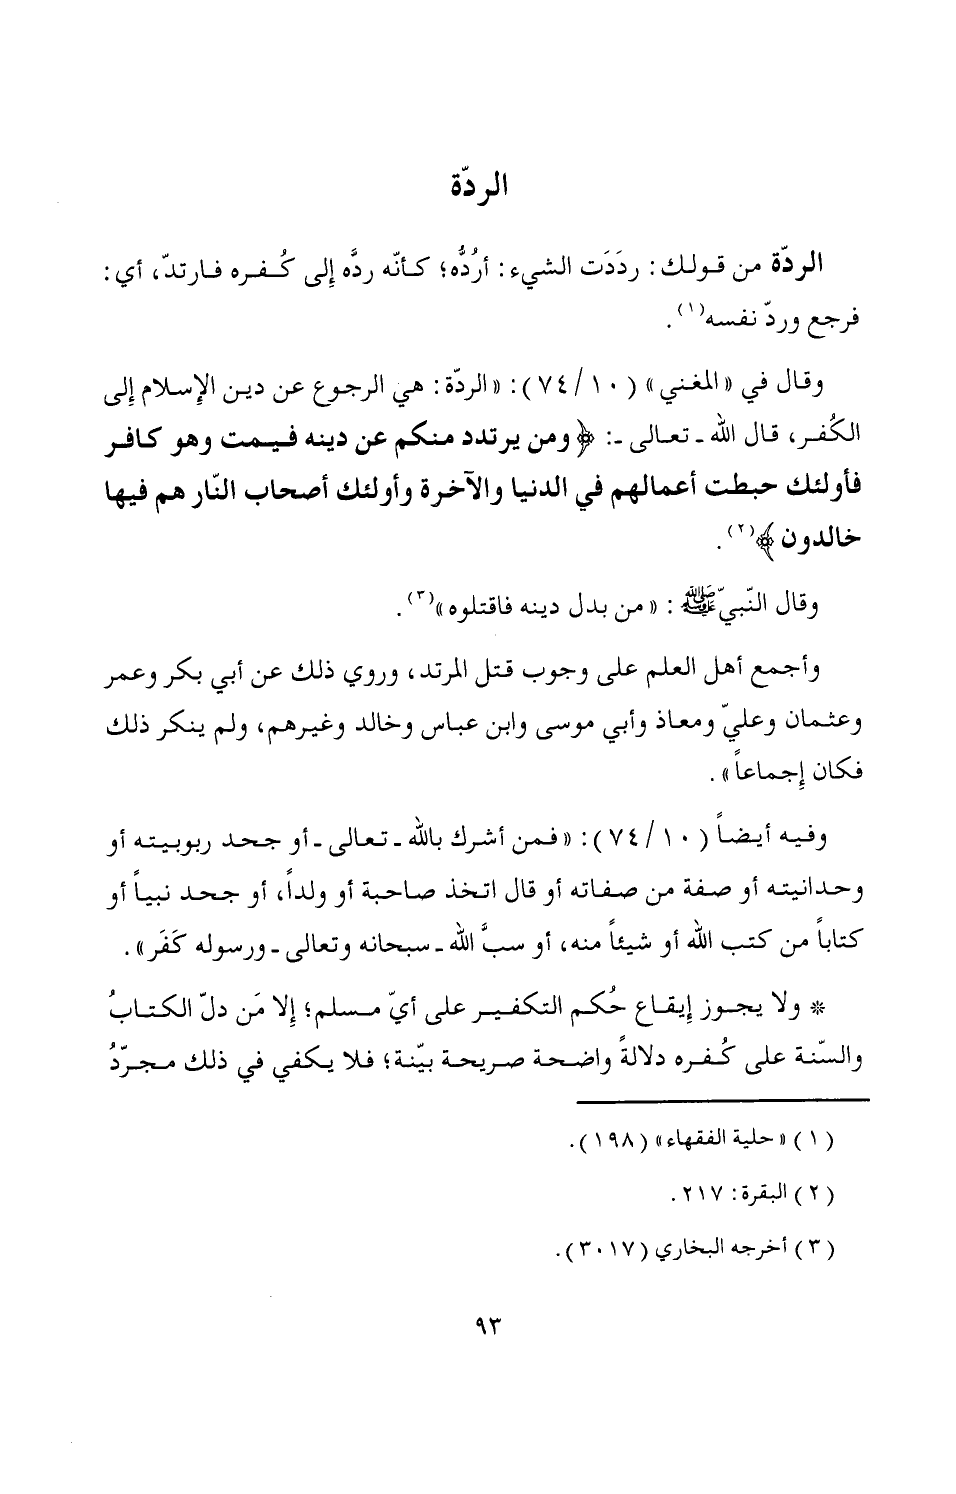 الردّة
الردّة من قولك: ردَدَت الشيء: أرُدُّه؛ كأنّه ردَّه إلى كُفره فارتدّ، أي:
فرجع وردّ نفسه(١).
وقال في «المغني» (١٠/ ٧٤): «الردّة: هي الرجوع عن دين الإسلام إلى
الكُفر، قال الله ـ تعالى ـ: ﴿ ومن يرتدد منكم عن دينه فيمت وهو كافر
فأولئك حبطت أعمالهم في الدنيا والآخرة وأولئك أصحاب النّار هم فيها
خالدون ﴾(٢).
وقال النّبيّ ﷺ : «من بدل دينه فاقتلوه»(٣).
وأجمع أهل العلم على وجوب قتل المرتد، وروي ذلك عن أبي بكر وعمر
وعثمان وعليّ ومعاذ وأبي موسى وابن عباس وخالد وغيرهم، ولم ينكر ذلك
فكان إجماعاً».
وفيه أيضاً (١٠/ ٧٤): «فمن أشرك بالله ـ تعالى ـ أو جحد ربوبيته أو
وحدانيته أو صفة من صفاته أو قال اتخذ صاحبة أو ولداً، أو جحد نبياً أو
كتاباً من كتب الله أو شيئاً منه، أو سبَّ الله ـ سبحانه وتعالى ـ ورسوله كَفَر».
* ولا يجوز إيقاع حُكم التكفير على أيّ مسلم؛ إلا مَن دلّ الكتابُ
والسّنة على كُفره دلالةً واضحة صريحة بيّنة؛ فلا يكفي في ذلك مجرّدُ
(١) «حلية الفقهاء» (١٩٨).
(٢) البقرة: ٢١٧.
(٣) أخرجه البخاري (٣٠١٧).
٩٣